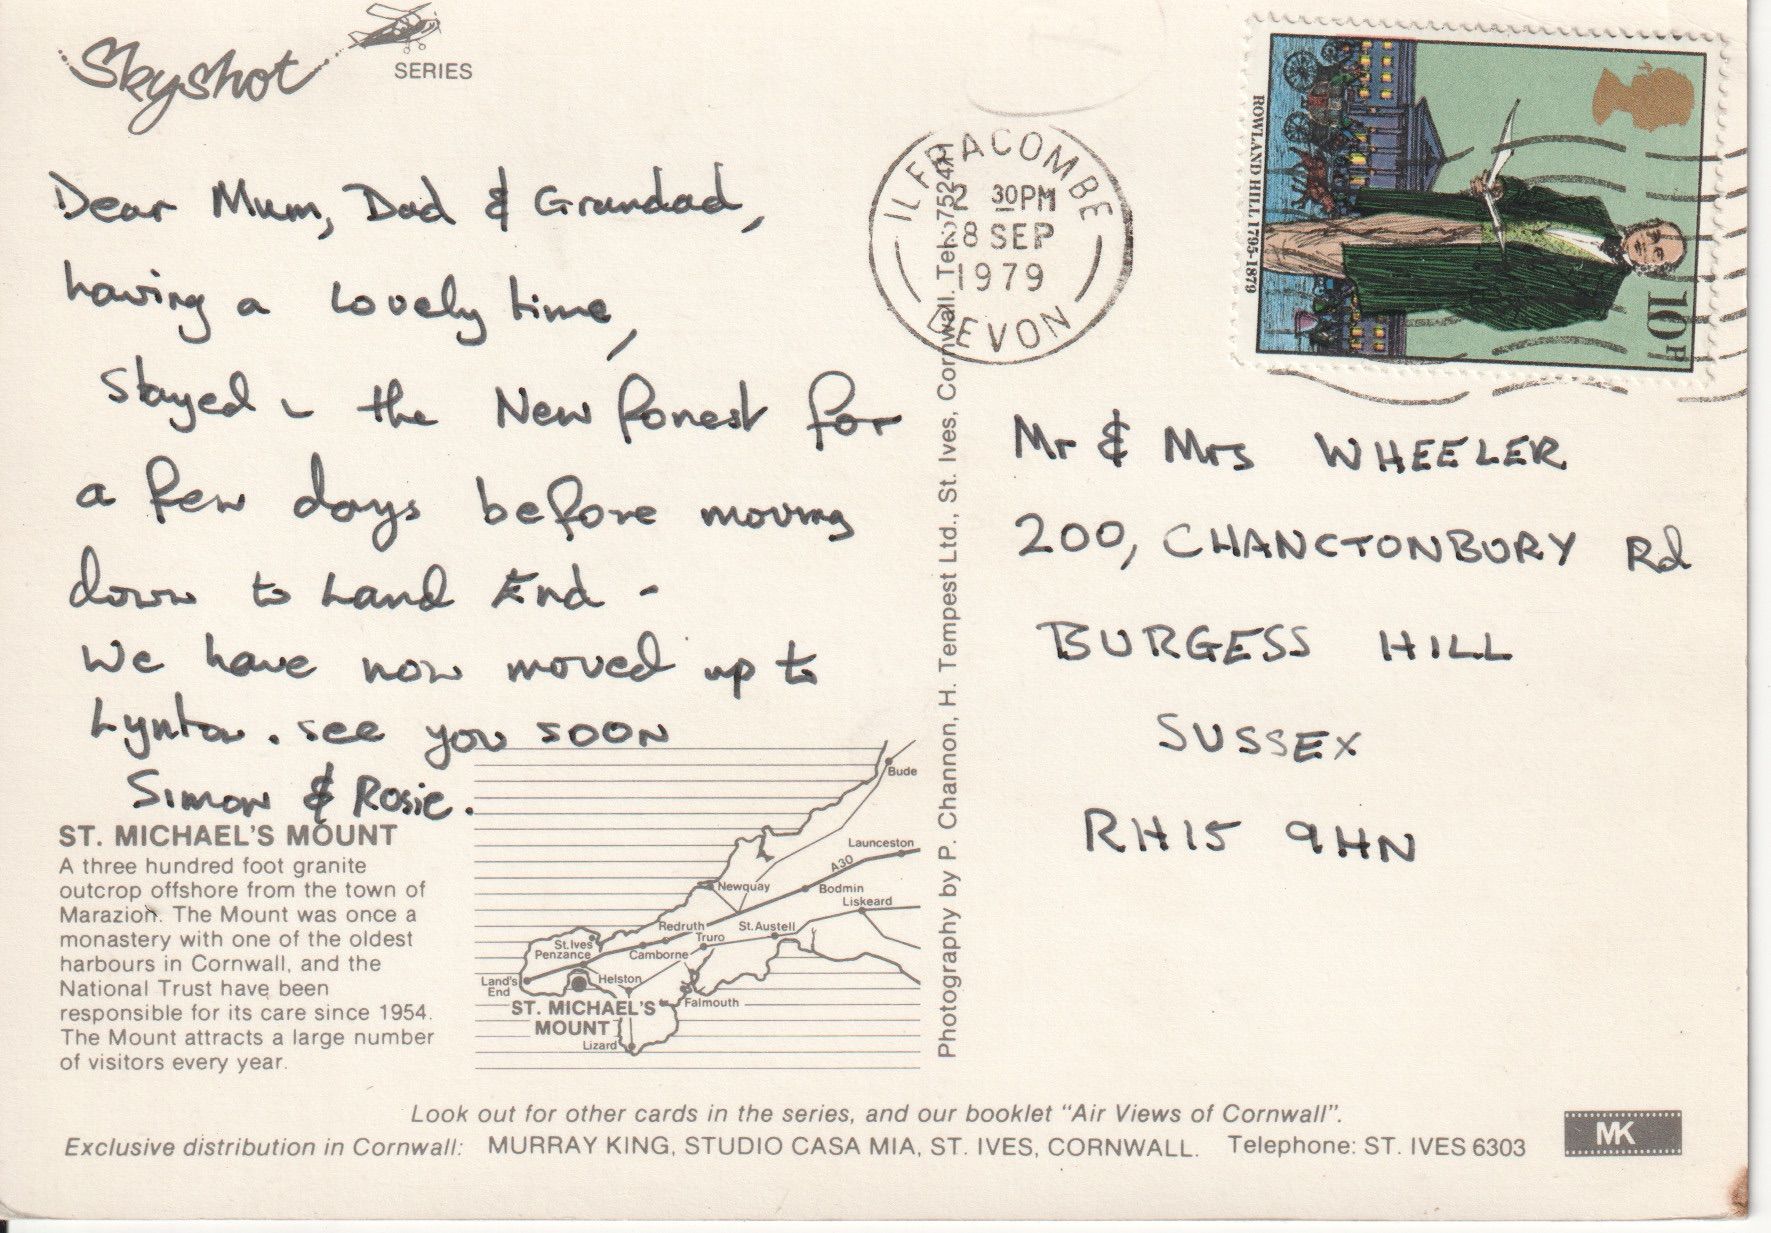 Skyshot
SERIES
Dear Mum, Dad & Grandad,
having a lovely time,
stayed in the New Forest for
a few days before moving
down to Land End -
We have now moved up to
Lynton. see you soon
Simon & Rosie.
ST. MICHAEL'S MOUNT
A three hundred foot granite
outcrop offshore from the town of
Marazion. The Mount was once a
monastery with one of the oldest
harbours in Cornwall, and the
National Trust have been
responsible for its care since 1954.
The Mount attracts a large number
of visitors every year.
Bude
Launceston
A30
Newquay
Bodmin
Liskeard
Redruth
St.Austell
Truro
St.Ives
Penzance
Camborne
Land's
End
Helston
ST. MICHAEL'S
MOUNT
Falmouth
Lizard
Photography by P. Channon, H. Tempest Ltd., St. Ives, Cornwall. Tel.
ILFRACOMBE
30PM
SEP
1979
DEVON
ROWLAND HILL 1795-1879
10P
Mr & Mrs WHEELER
200, CHANCTONBURY Rd
BURGESS HILL
SUSSEX
RH15 9HN
Look out for other cards in the series, and our booklet "Air Views of Cornwall".
Exclusive distribution in Cornwall: MURRAY KING, STUDIO CASA MIA, ST. IVES, CORNWALL. Telephone: ST. IVES 6303
MK